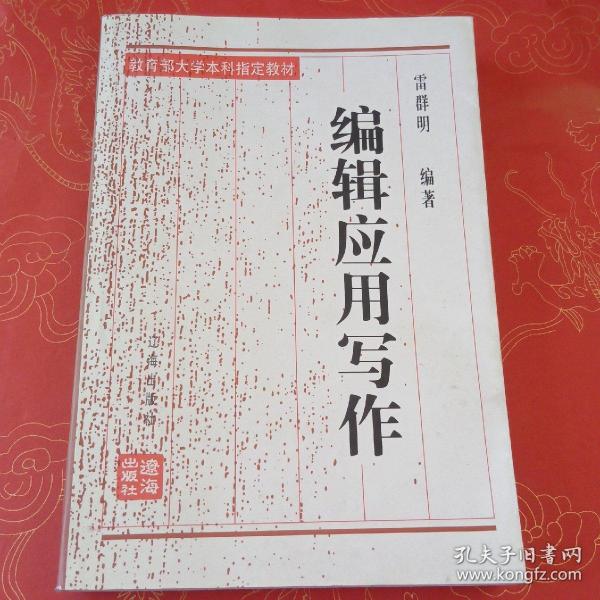 教育部大学本科指定教材
雷群明 编著
编辑应用写作
辽海出版社
遼海
出版社
孔夫子旧书网
www.kongfz.com